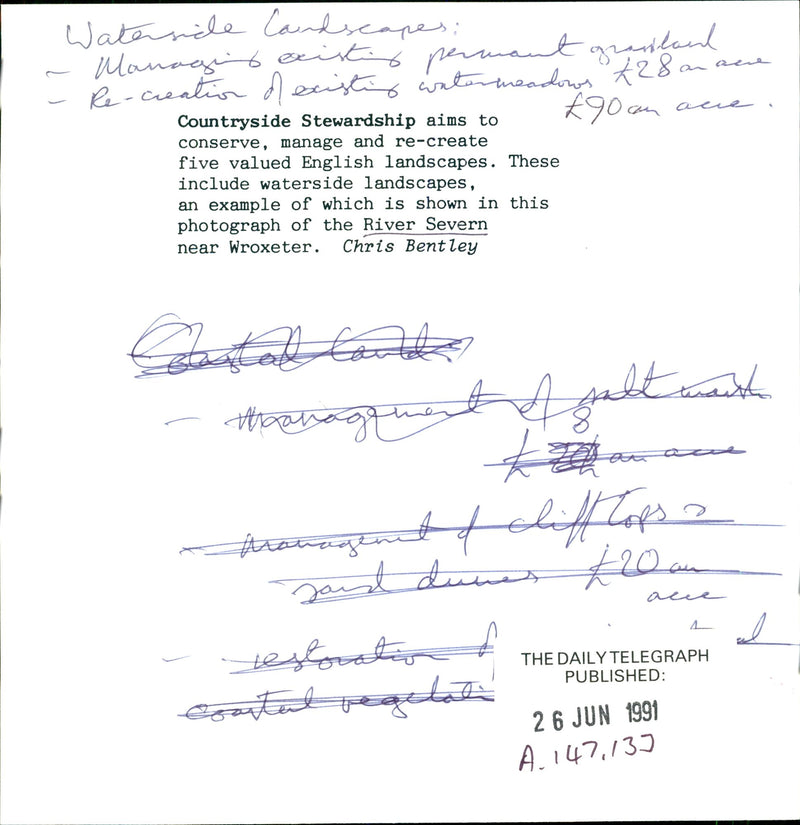 Waterside Landscapes:
- Managing existing permanent grassland
£28 an acre
- Re-creation of existing watermeadows
£90 an acre.
Countryside Stewardship aims to
conserve, manage and re-create
five valued English landscapes. These
include waterside landscapes,
an example of which is shown in this
photograph of the River Severn
near Wroxeter. Chris Bentley
Coastal Land
- Management of salt marsh
8
£ an acre
- Management of cliff tops &
sand dunes £20 an
acre
- restoration of
coastal vegetati
THE DAILY TELEGRAPH
PUBLISHED:
26 JUN 1991
A.147,13J